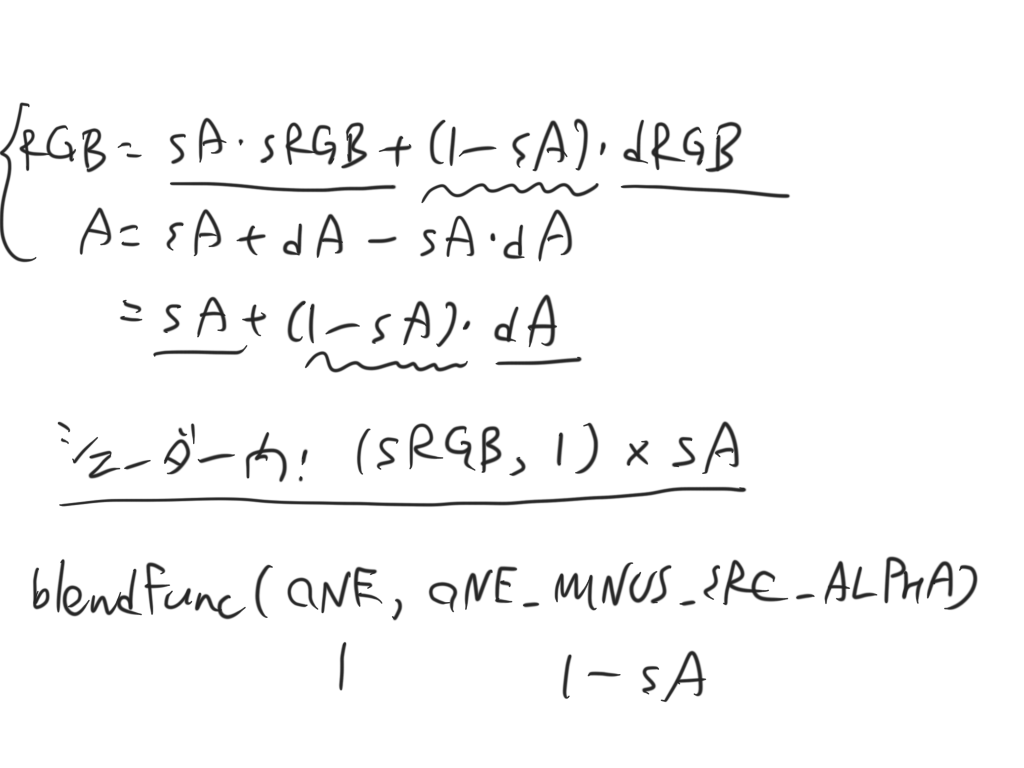 RGB = sA・sRGB + (1-sA)・dRGB
A = sA + dA - sA・dA
= sA + (1-sA)・dA
シェーダー内: (sRGB, 1) × sA
blendFunc(ONE, ONE_MINUS_SRC_ALPHA)
1 1-sA